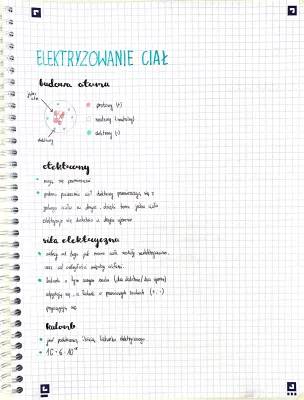 ELEKTRYZOWANIE CIAŁ
budowa atomu
jądro
protony (+)
neutrony (neutralny)
elektrony (-)
elektrony
elektrony
mogą się przemieszczać
podczas pocierania ciał elektrony przemieszczają się z
jednego ciała na drugie, dzięki temu jedno ciało
elektryzuje się dodatnio a drugie ujemnie
siła elektryczna
zależy od tego jak mocno ciała zostały naelektryzowane,
oraz od odległości między ciałami
ładunki o tym samym znaku (dwa dodatnie/dwa ujemne)
odpychają się, a ładunki o przeciwnych znakach (+, -)
przyciągają się
kulomb
jest podstawową ładunku elektrycznego